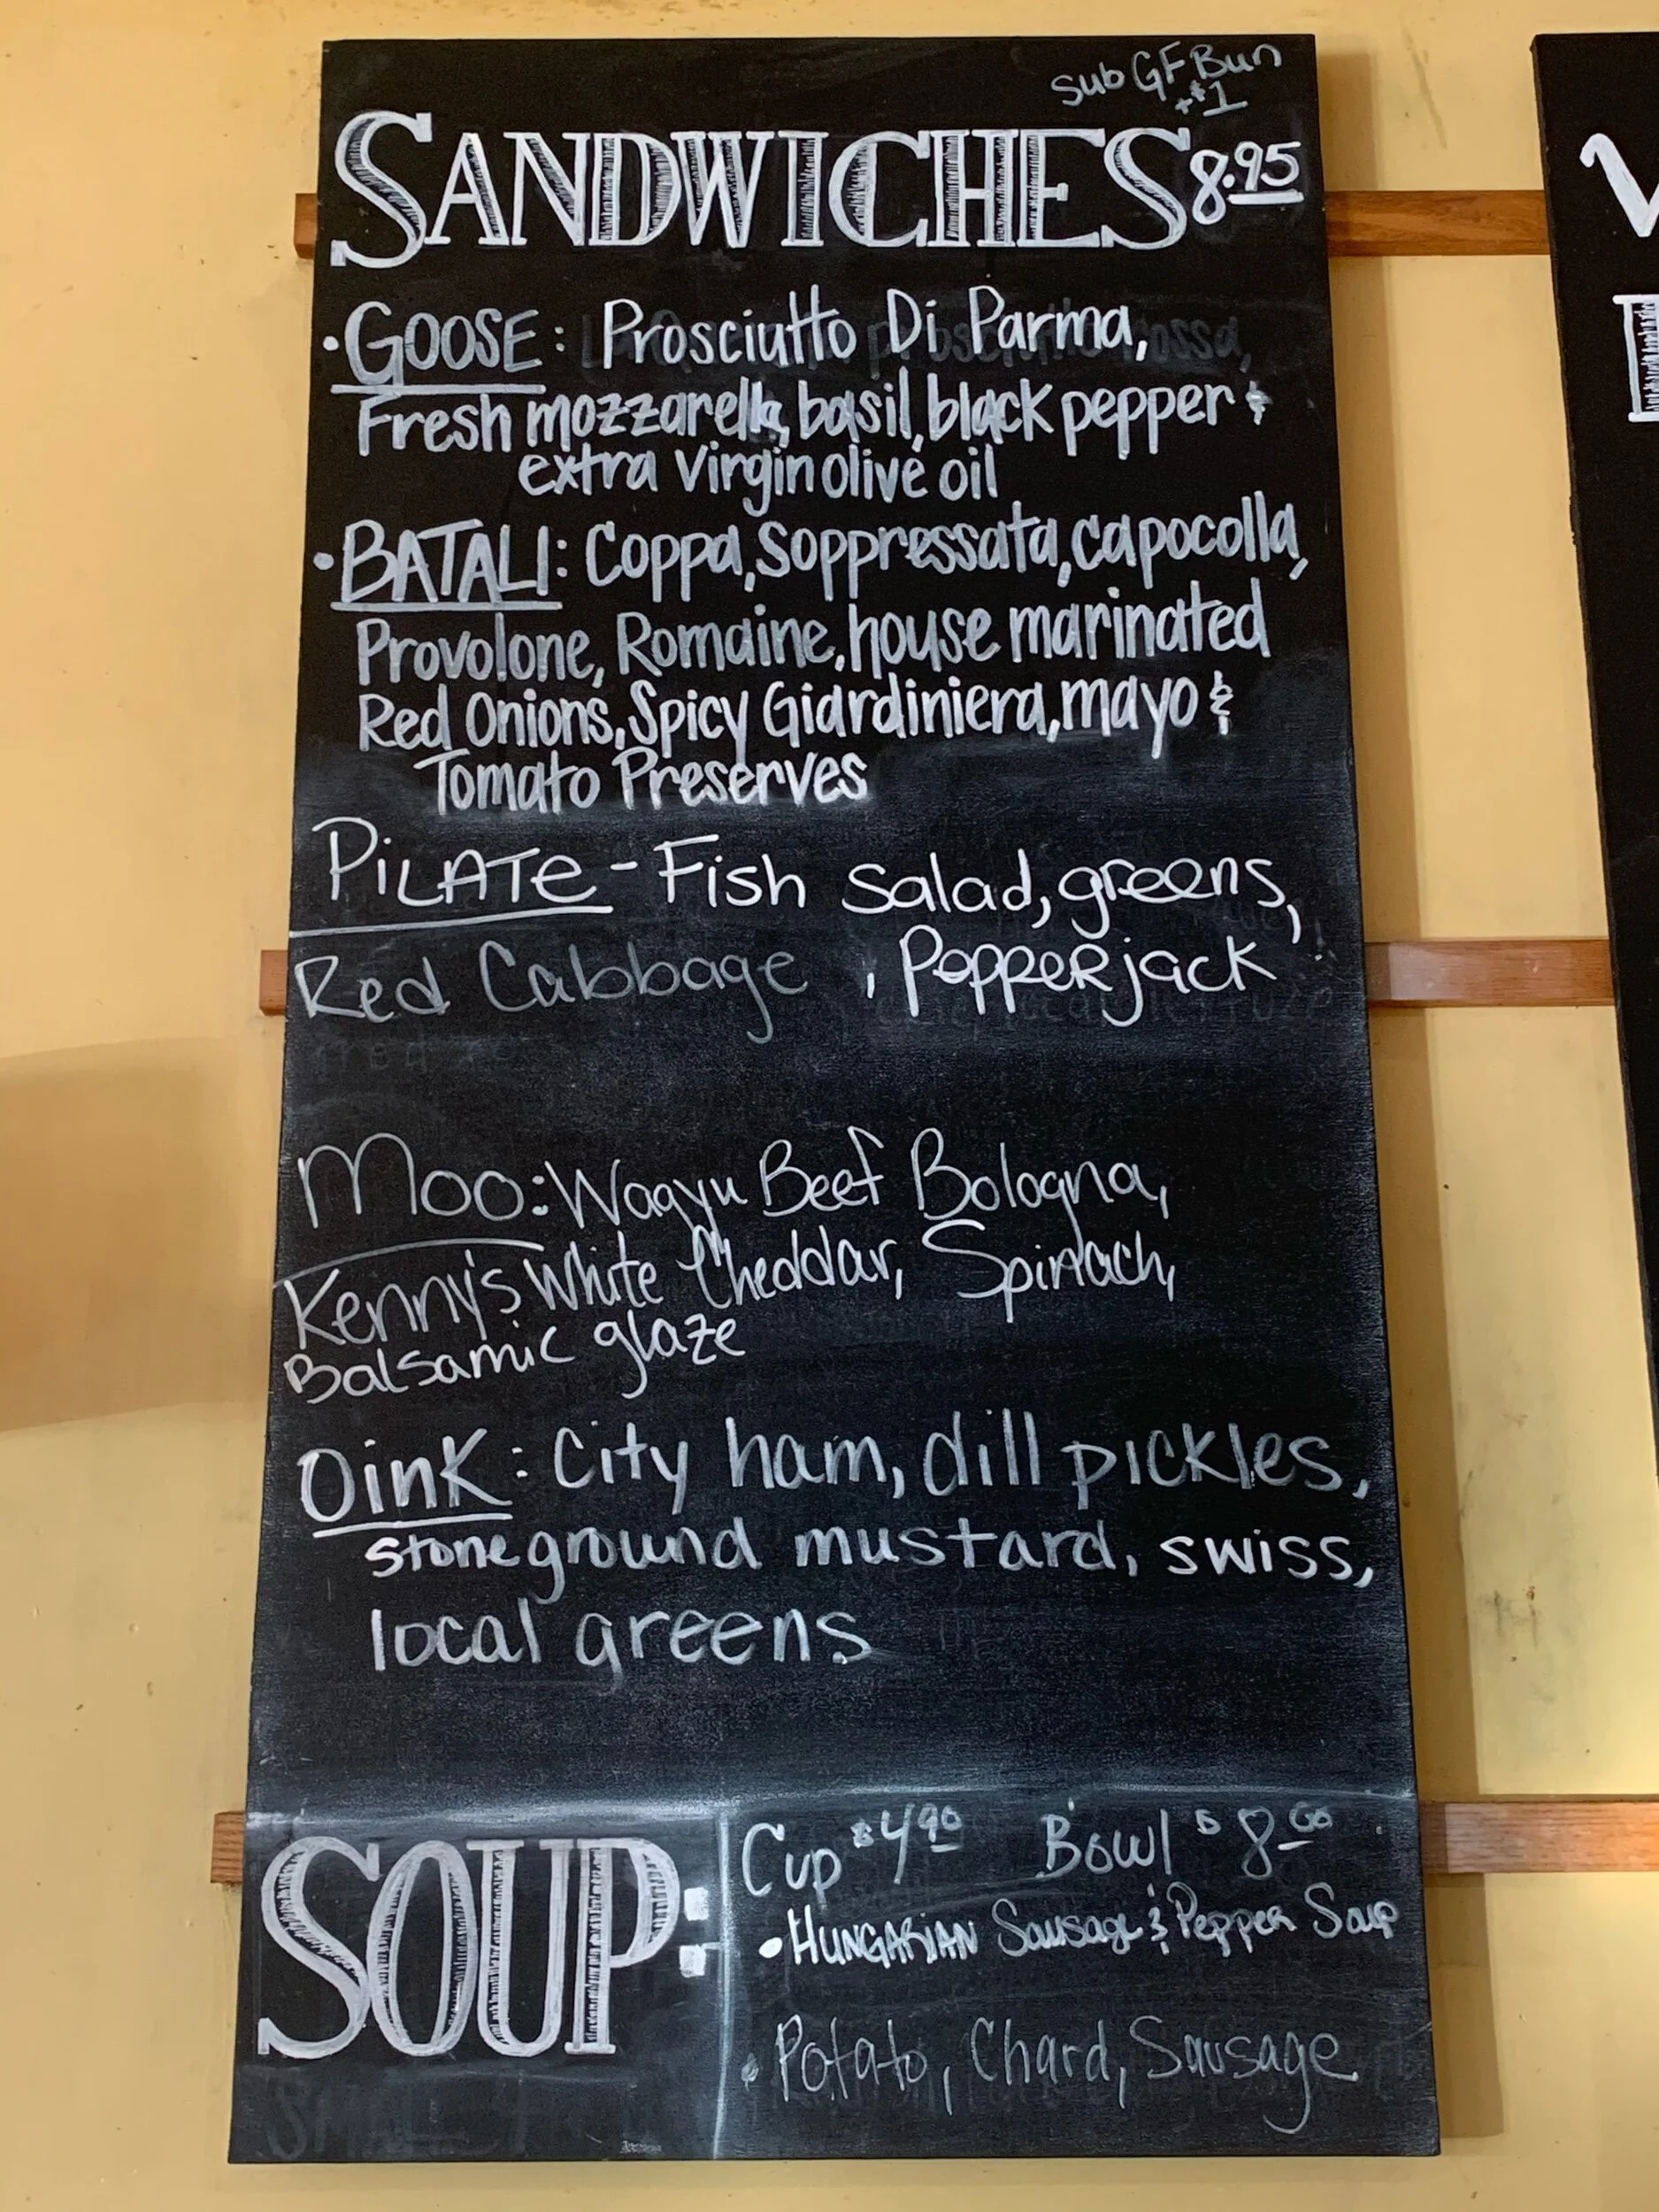 Sub GF Bun
+$1
SANDWICHES 8.95
• GOOSE: Prosciutto Di Parma,
Fresh mozzarella, basil, black pepper &
extra Virgin olive oil
• BATALI: Coppa, Soppressata, capocolla,
Provolone, Romaine, house marinated
Red Onions, Spicy Giardiniera, mayo &
Tomato Preserves
PiLATe - Fish Salad, greens,
Red Cabbage , PepperjacK
Moo: Wagyu Beef Bologna,
Kenny's White Cheddar, Spinach,
Balsamic glaze
OinK: City ham, dill pickles,
stoneground mustard, swiss,
local greens
SOUP:
Cup $4.90 Bowl $8.00
• HUNGARIAN Sausage & Pepper Soup
• Potato, Chard, Sausage